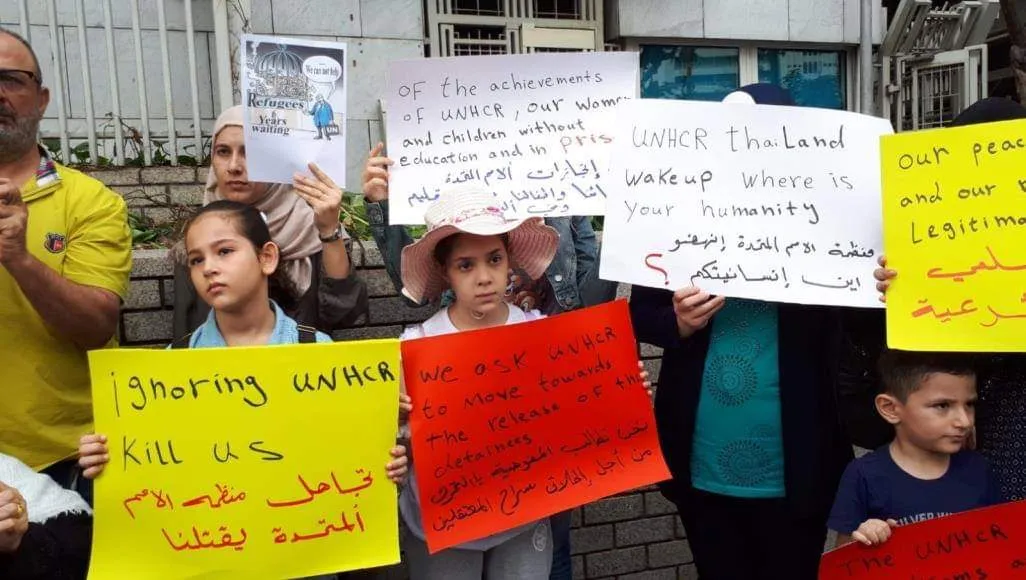 we can not help
Refugees
6
Years
waiting
UN
OF the achievements
OF UNHCR, our women
and children without
education and in pris
إنجازات الامم المتحدة
UNHCR thaiLand
wakeup where is
your humanity
منظمة الامم المتحدة إنهضو
اين إنسانيتكم ؟
our peac
and our
Legitima
سلمي
رعية
ignoring UNHCR
Kill us
تجاهل منظمه الامم
المتحدة يقتلنا
we ask UNHCR
to move towards
the release of the
detainees
نحن نطالب المفوضية بالتحرك
من أجل إطلاق سراح المعتقلين
SILVER
The UNHCR